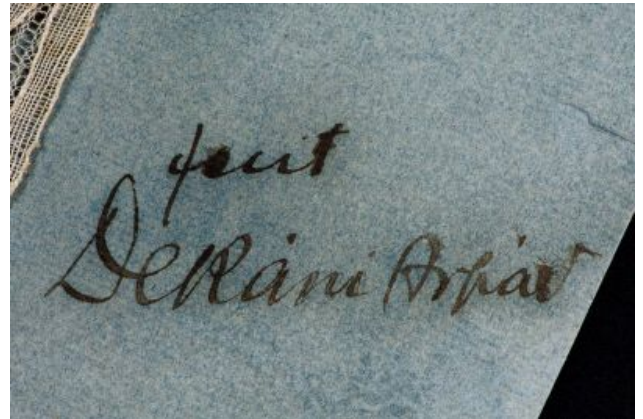 fecit
Dékáni Árpád